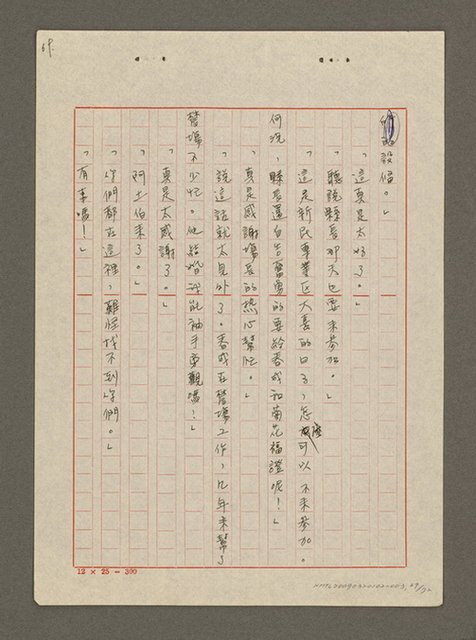 69.
設備。」
「這真是太好了。」
「聽說縣長那天也要來參加。」
「這是新民專業區大喜的日子，怎麼可以不來參加。
何況，縣長還自告奮勇的要給春成和菊花福證呢！」
「真是感謝場長的熱心幫忙。」
「說這話就太見外了。春成在醫場工作，几年來幫了
醫場不少忙。他結婚我能袖手旁觀嗎？」
「真是太感謝了。」
「阿土伯來了。」
「你們都在這裡，難怪找不到你們。」
「有事嗎！」
12 × 25 = 300